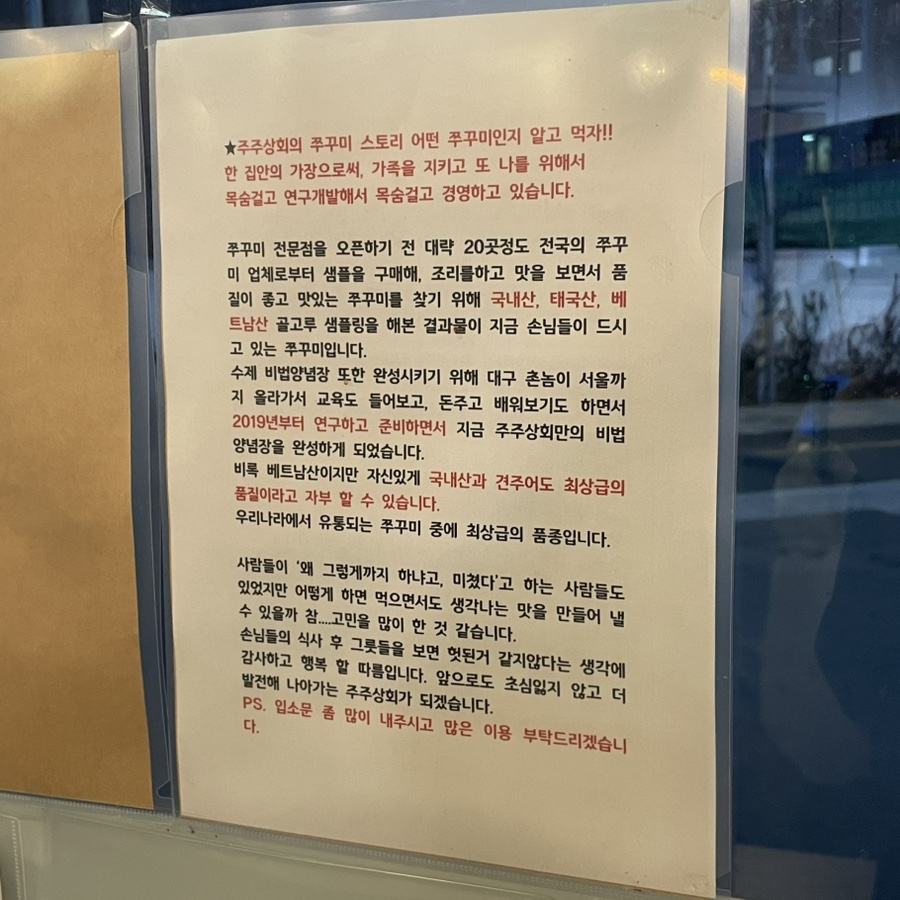 ★주주상회의 쭈꾸미 스토리 어떤 쭈꾸미인지 알고 먹자!!
한 집안의 가장으로써, 가족을 지키고 또 나를 위해서
목숨걸고 연구개발해서 목숨걸고 경영하고 있습니다.
쭈꾸미 전문점을 오픈하기 전 대략 20곳정도 전국의 쭈꾸
미 업체로부터 샘플을 구매해, 조리를하고 맛을 보면서 품
질이 좋고 맛있는 쭈꾸미를 찾기 위해 국내산, 태국산, 베
트남산 골고루 샘플링을 해본 결과물이 지금 손님들이 드시
고 있는 쭈꾸미입니다.
수제 비법양념장 또한 완성시키기 위해 대구 촌놈이 서울까
지 올라가서 교육도 들어보고, 돈주고 배워보기도 하면서
2019년부터 연구하고 준비하면서 지금 주주상회만의 비법
양념장을 완성하게 되었습니다.
비록 베트남산이지만 자신있게 국내산과 견주어도 최상급의
품질이라고 자부 할 수 있습니다.
우리나라에서 유통되는 쭈꾸미 중에 최상급의 품종입니다.
사람들이 '왜 그렇게까지 하냐고, 미쳤다'고 하는 사람들도
있었지만 어떻게 하면 먹으면서도 생각나는 맛을 만들어 낼
수 있을까 참....고민을 많이 한 것 같습니다.
손님들의 식사 후 그릇들을 보면 헛된거 같지않다는 생각에
감사하고 행복 할 따름입니다. 앞으로도 초심잃지 않고 더
발전해 나아가는 주주상회가 되겠습니다.
PS. 입소문 좀 많이 내주시고 많은 이용 부탁드리겠습니
다.